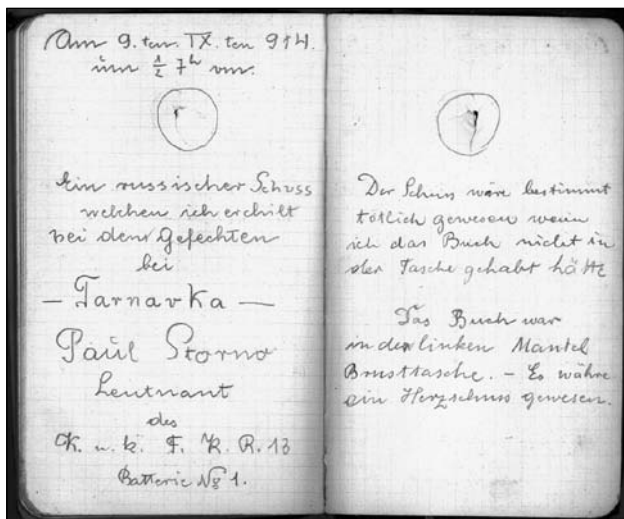 Am 9. ten. IX. ten 914.
um ½ 7h vm.
Ein russischer Schuss
welchen ich erhilt
bei dem Gefechten
bei
– Tarnavka –
Paul Storno
Leutnant
des
K. u. k. F. K. R. 13
Batterie No 1.
Der Schuss wäre bestimmt
tötlich gewesen wenn
ich das Buch nicht in
der Tasche gehabt hätte
Das Buch war
in der linken Mantel
Brusttasche. – Es währe
ein Herzschuss gewesen.